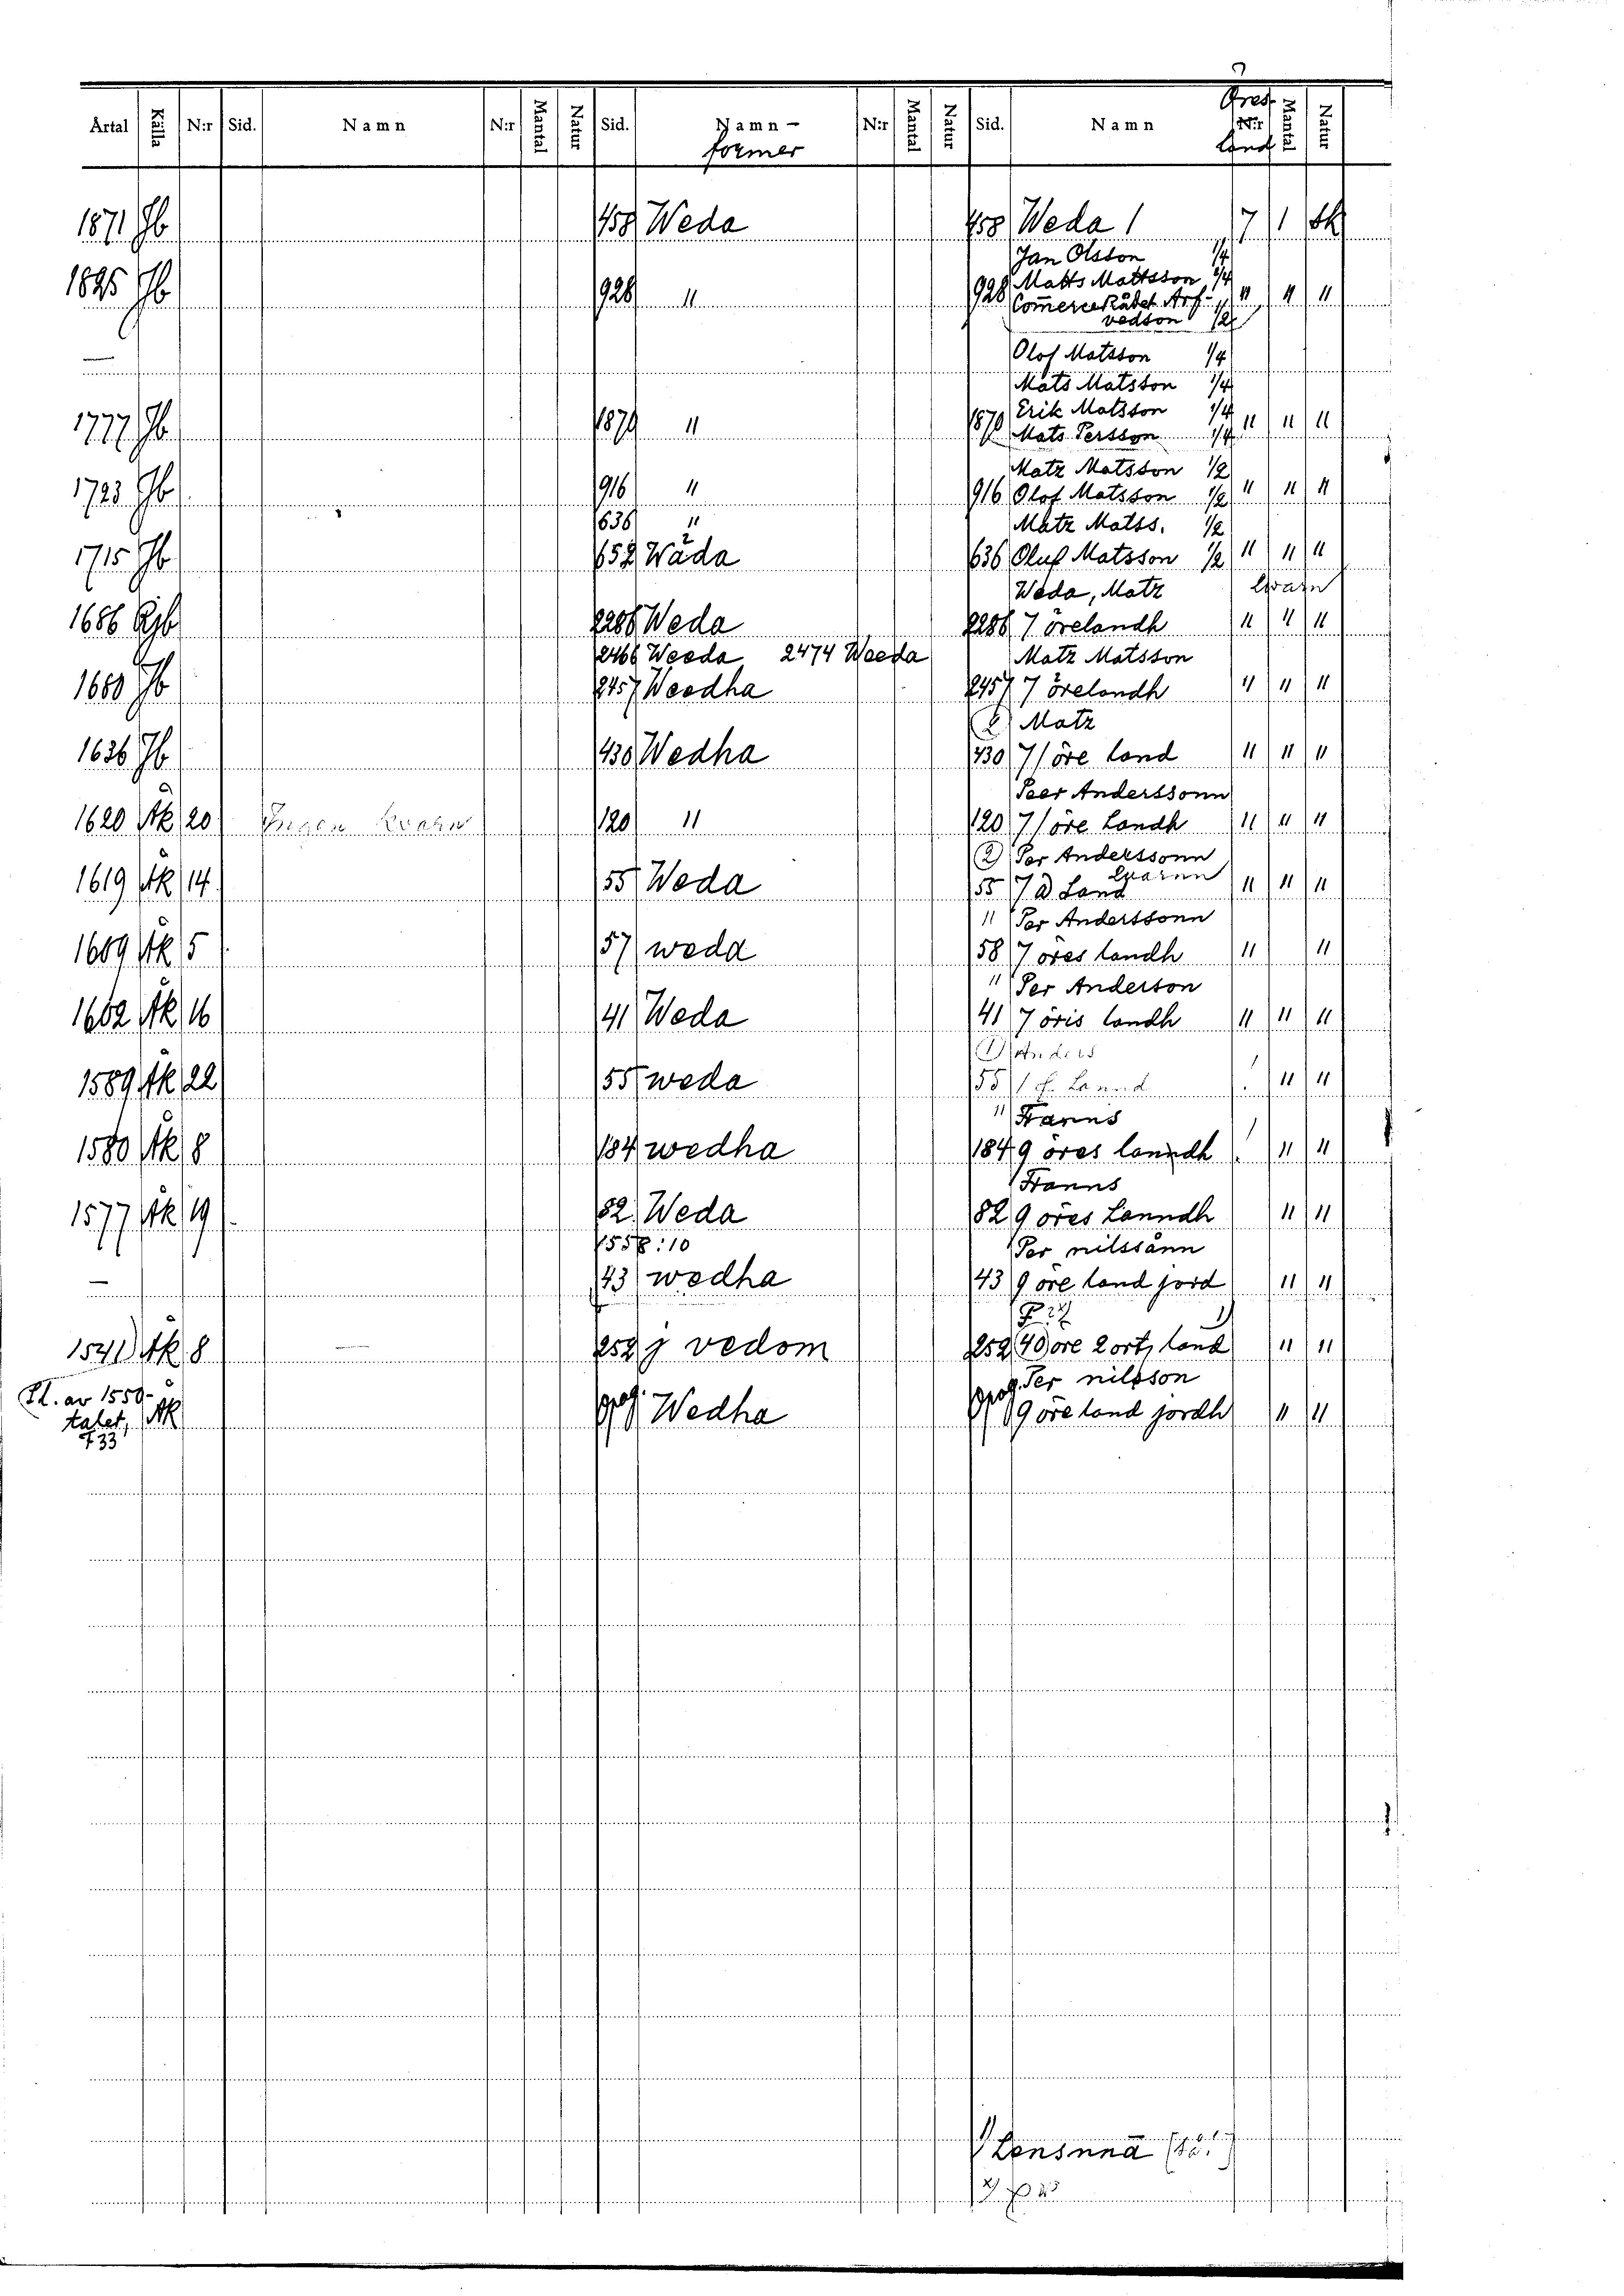 Årtal Källa N:r Sid. Namn N:r Mantal Natur Sid. Namn- N:r Mantal Natur Sid. Namn N:r Mantal Natur
former land
1871 Jb 458 Weda 458 Weda 1 7 1 sk
Jan Olsson 1/4
Matts Mattsson 1/4
1825 Jb 928 " 928 Commerce Rådet Arf- " " "
vedson 1/2
Olof Matsson 1/4
Mats Matsson 1/4
Erik Matsson 1/4
1777 Jb 1879 " 1879 Mats Persson 1/4 " " "
Matz Matsson 1/2
1723 Jb 916 " 916 Olof Matsson 1/2 " " "
636 " Matz Matss. 1/2
1715 Jb 652 Wäda 636 Oluf Matsson 1/2 " " "
Weda, Matz
1686 2286 Weda 2286 7 örelandh " " "
2466 Weeda 2474 Weeda Matz Matsson
1680 Jb 2457 Weedha 2457 7 örelandh " " "
Matz
1636 Jb 430 Wedha 430 7 öre land " " "
Peer Anderssonn
1620 Äk 20 Ingen 120 " 120 7 öre Landh " " "
2) Per Anderssonn
1619 Äk 14 55 Weda 55 7 Land " " "
" Per Anderssonn
1609 Äk 5 57 weda 58 7 öres landh " "
" Per Anderson
1602 Äk 16 41 Weda 41 7 öris landh " " "
1) Anders
1589 Äk 22 55 weda 55 " "
" Hanns
1580 Äk 8 184 wedha 184 9 öres lanndh " "
Hanns
1577 Äk 19 82 Weda 82 9 öres Lanndh " "
1558:10 Per nilssånn
— 43 wedha 43 9 öre land jord " "
1541 Äk 8 252 j vedom 252 öre 2 ort. land " "
Per nilsson
Fl. av 1550-
talet, Äk Wedha 9 öre land jordh " "
F 33
Lensnnä